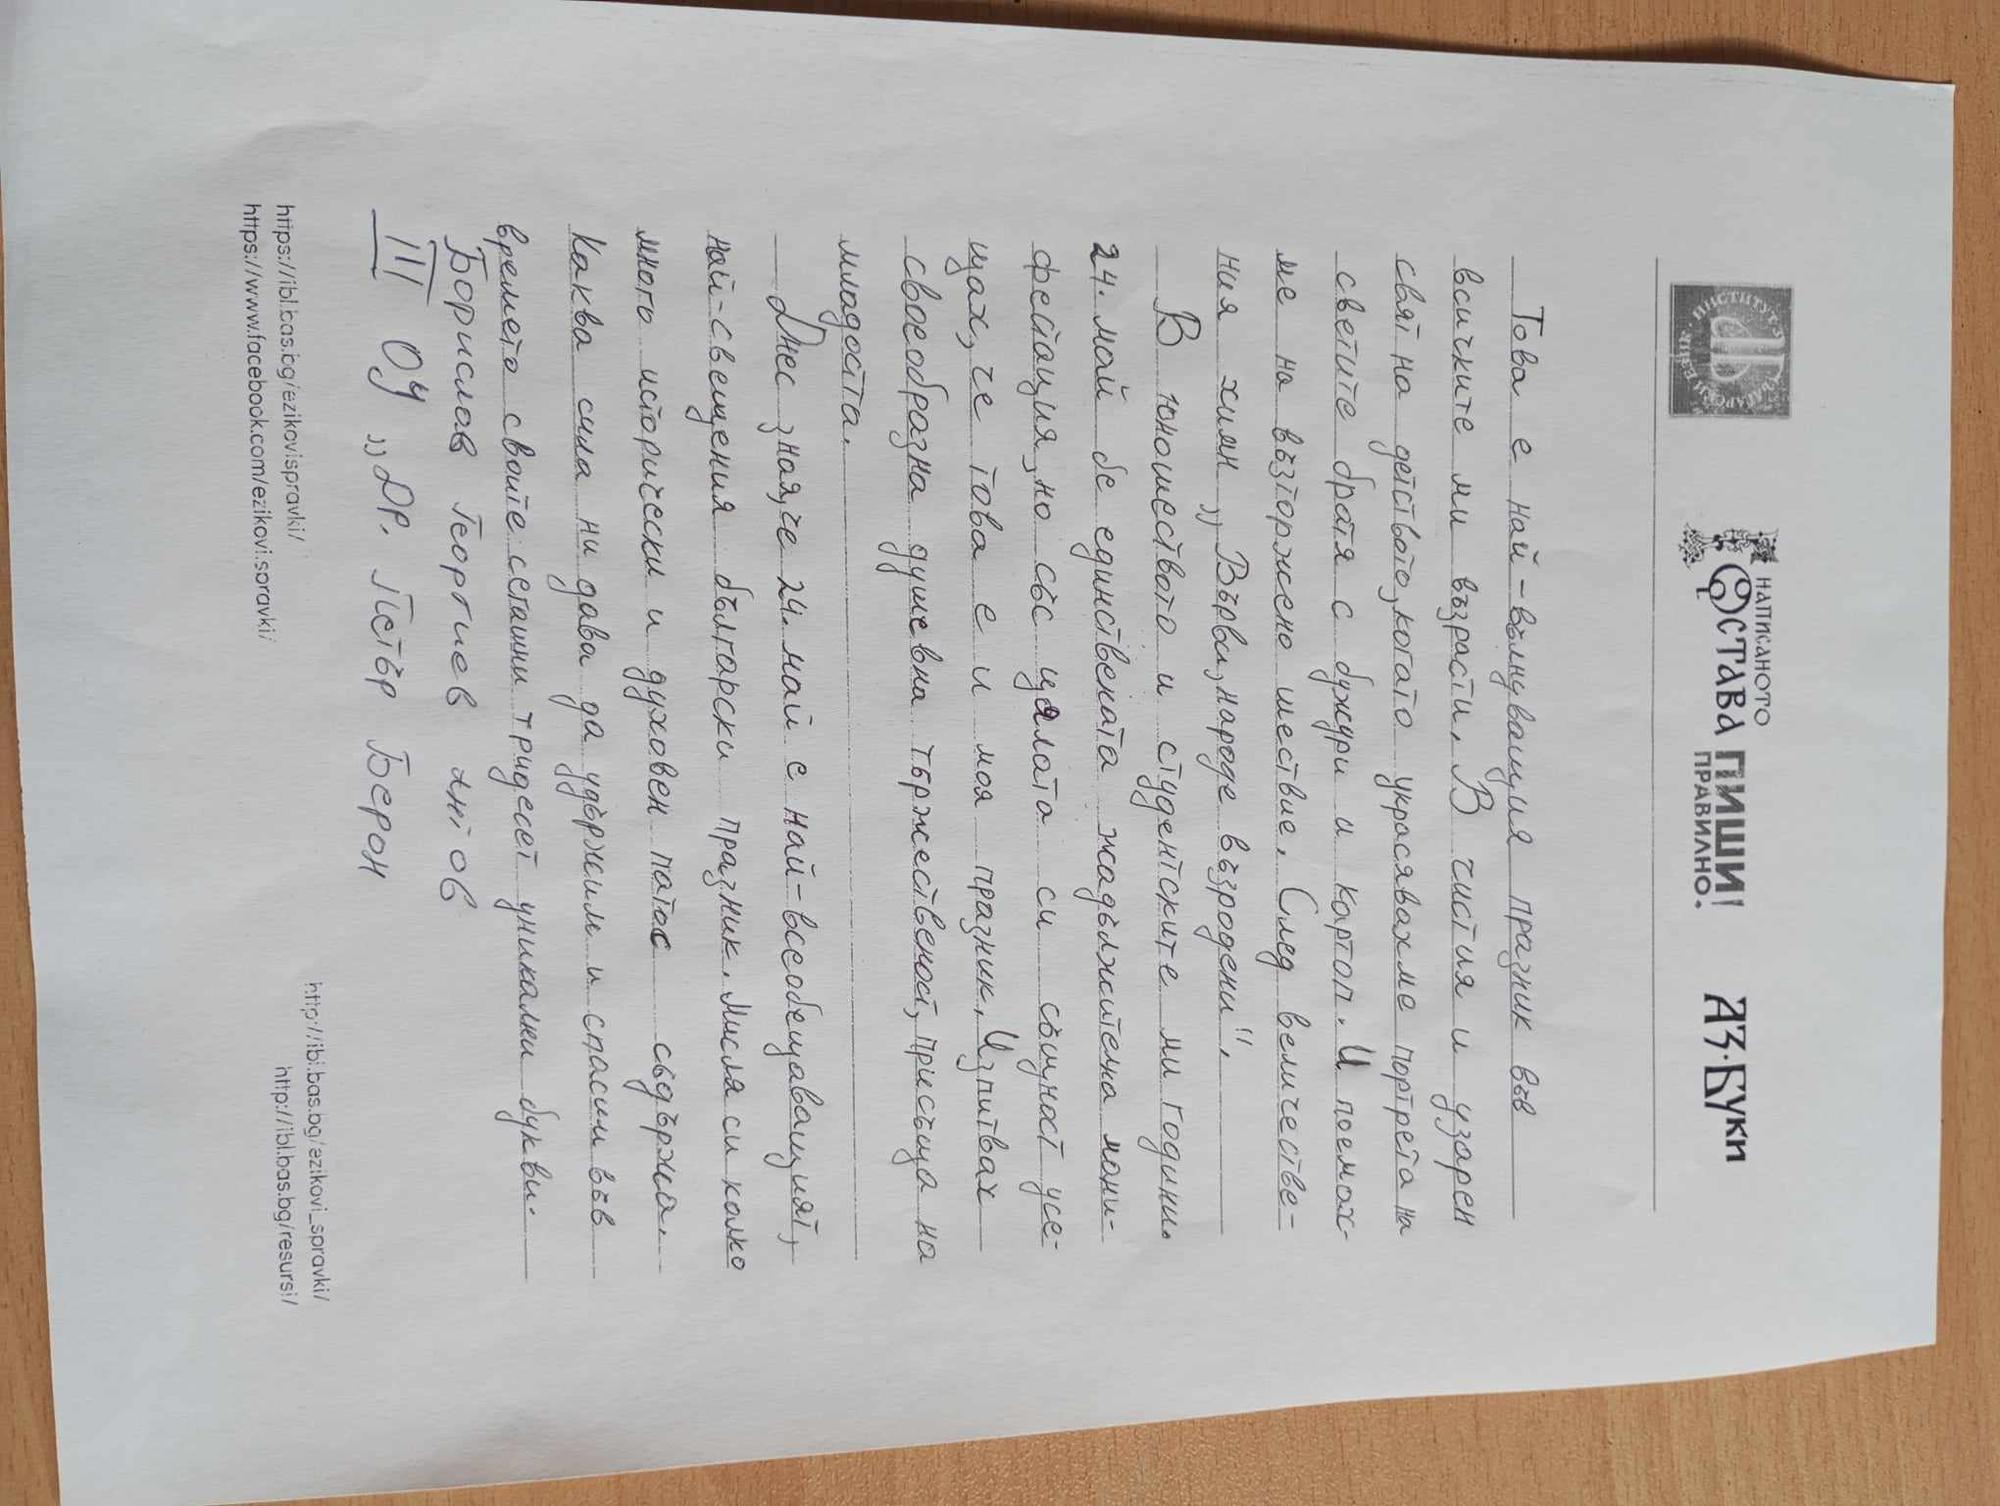 ИНСТИТУТ
НАПИСАНОТО
ОСТАВА
ПИШИ!
ПРАВИЛНО!
АЗ·БУКИ
Това е най-вълнуващия празник във
всичките ми възрасти. В чистия и узарен
свят на детството, когато украсявахме портрета на
светите братя с бужури и картоп. И поемах-
ме на възторжено шествие. След величестве-
ния химн „Върви, народе възродени".
В юношеството и студентските ми години.
24. май бе единствената жадължителна мани-
фестация, но със цялата си същност усе-
щах, че това е и моя празник. Изпитвах
своеобразна душевна тържественост, присъща на
младоста.
Днес зная, че 24. май е най-всеобещаващият,
най-свещения български празник. Мисля си колко
много исторически и духовен патос съдържа.
Каква сила ни дава да удържим и спасим във
времето свойте сегашни тридесет уникални букви.
Борислав Георгиев Янтов
III ОУ „Др. Петър Берон
https://ibl.bas.bg/ezikovispravki/
https://www.facebook.com/ezikovi.spravki/
http://ibl.bas.bg/ezikovi_spravki/
http://ibl.bas.bg/resursi/